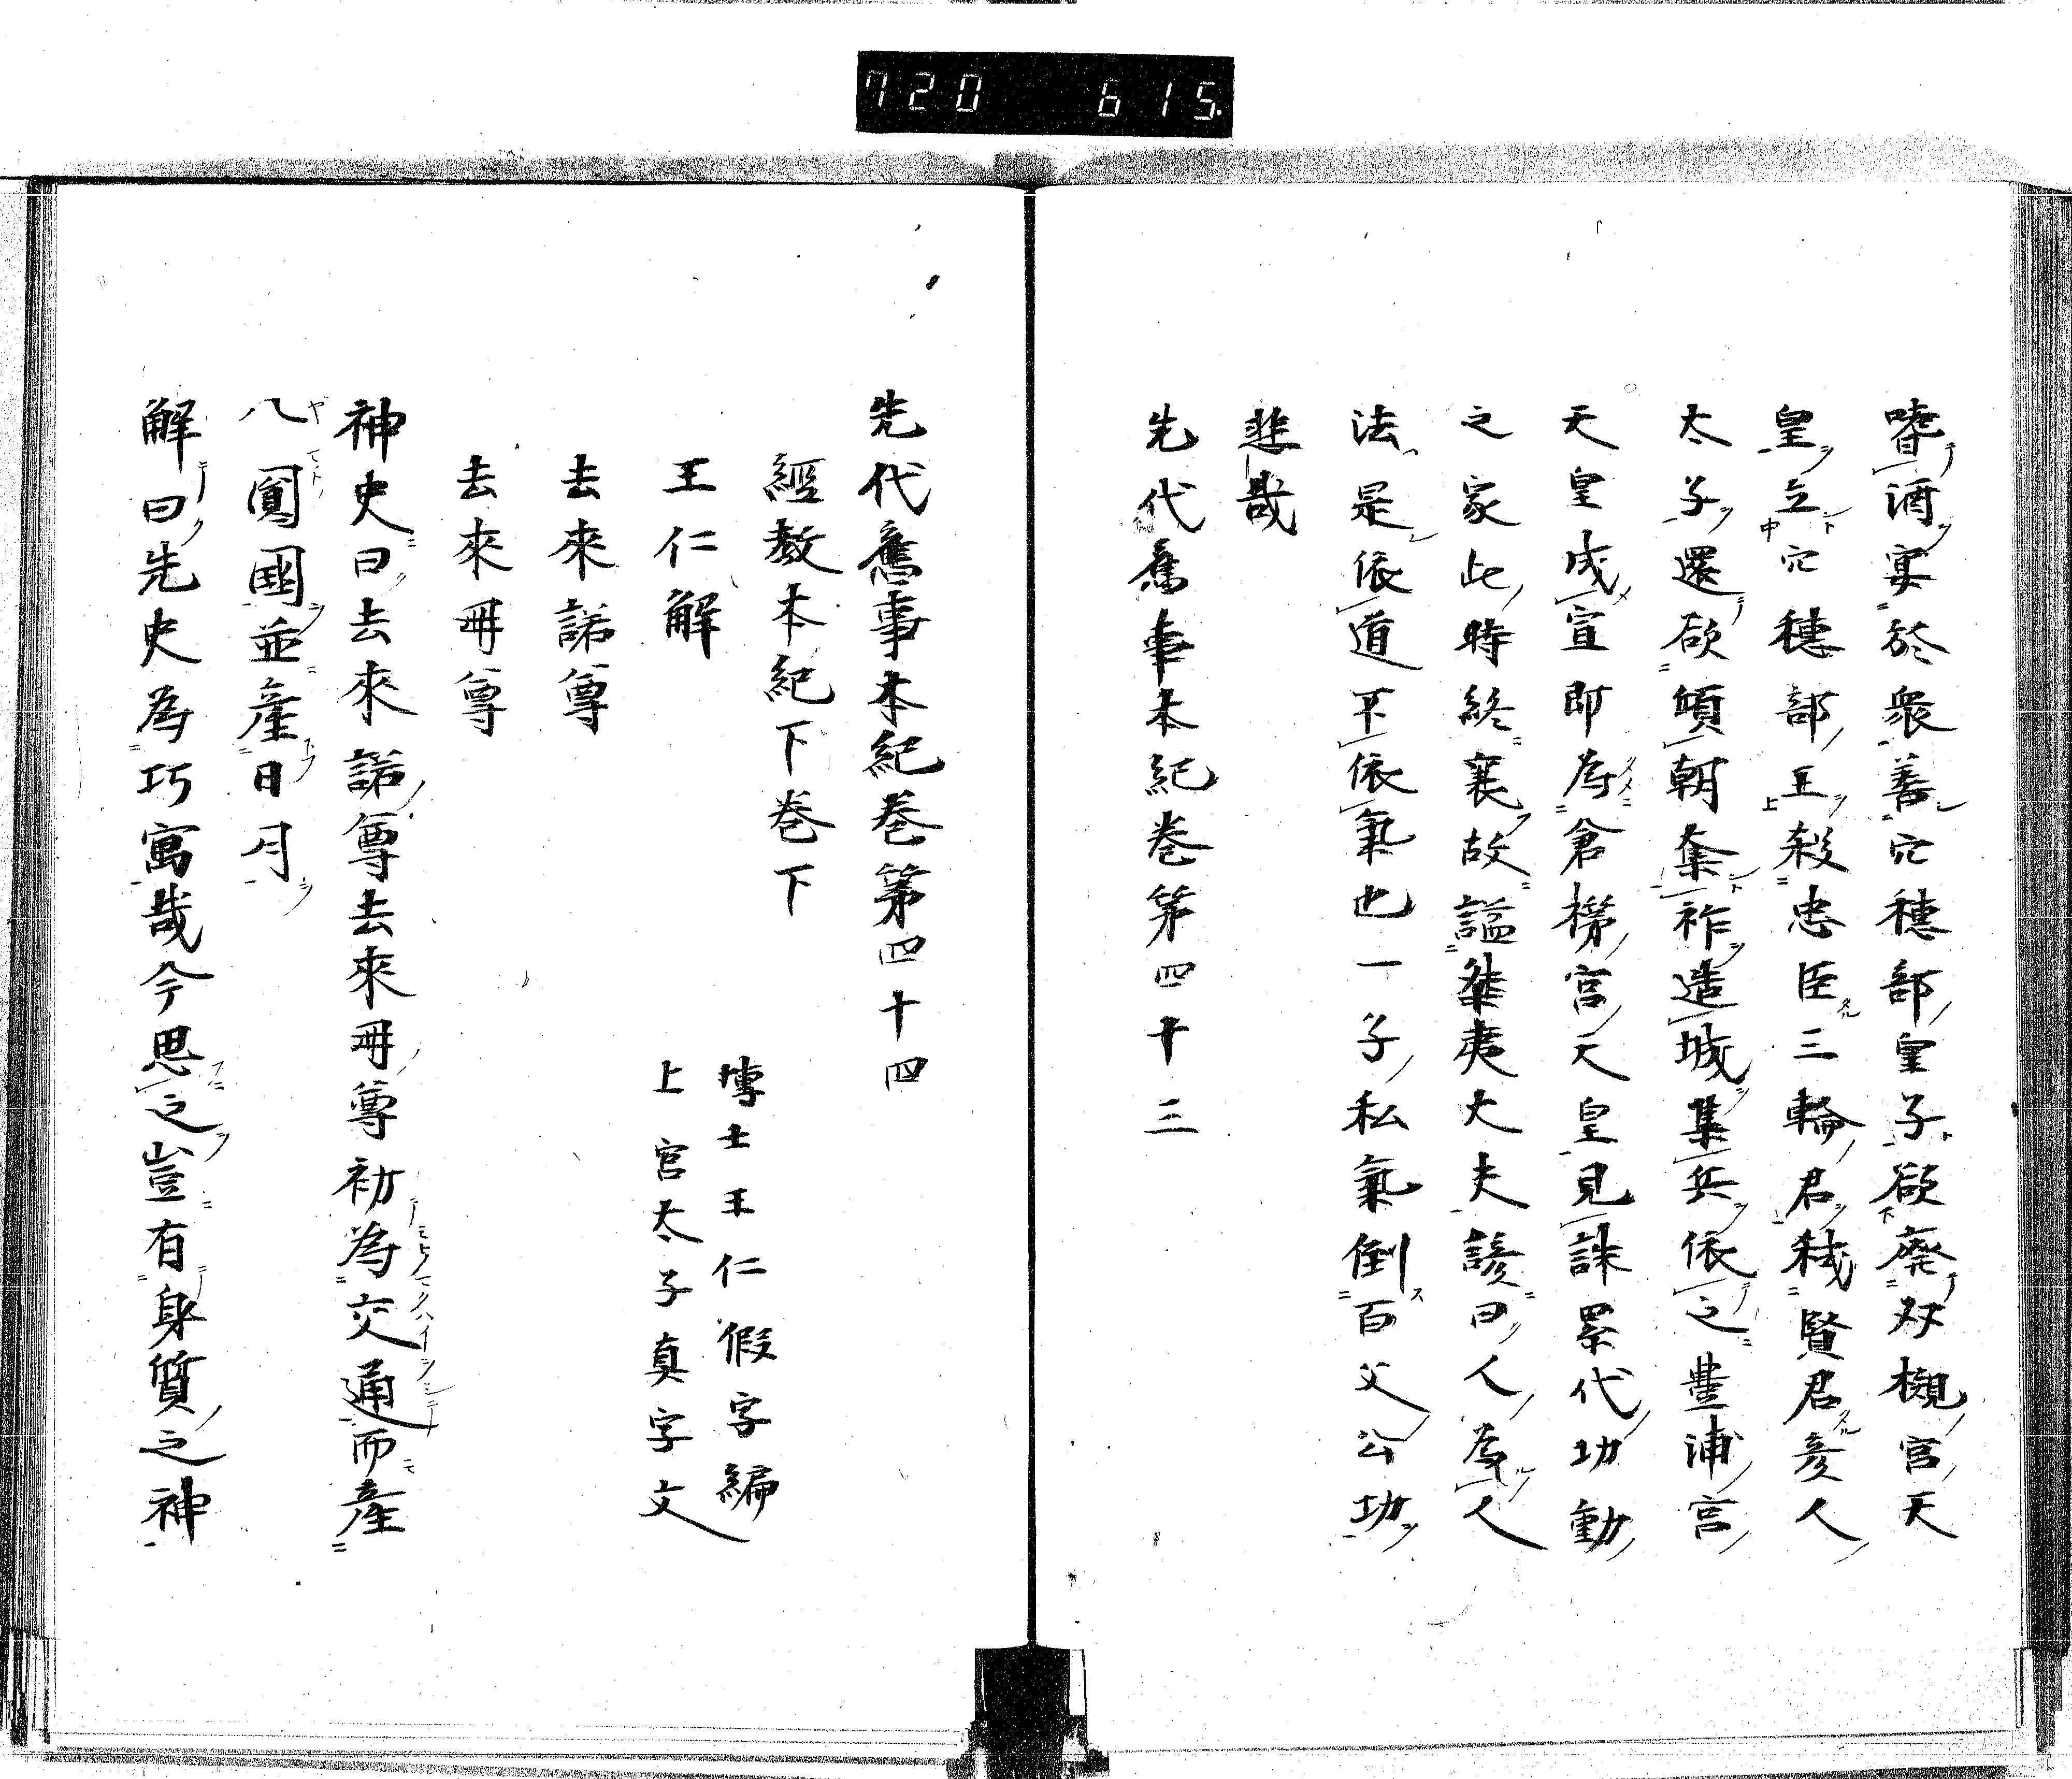 720 615.
嘗酒宴於衆善穴穗部皇子欲廢双槻宮天
皇立穴穗部王殺忠臣三輪君穢賢君彥人
太子還欲傾朝奪祚造城集兵依之豊浦宮
天皇成宣即為倉橋宮天皇見誅累代功動
之家此時終衰故謚桀夷大夫諺曰人為人
法是依道不依氣也一子私氣倒百父公功
悲哉
先代舊事本紀巻第四十三
先代舊事本紀巻第四十四
經教本紀下巻下
博士王仁假字編
王仁解
上宮太子真字文
去來諾尊
去來冊尊
神史曰去來諾尊去來冊尊初為交通而産
八圓國並産日月
解曰先史為巧寓哉今思之豈有身質之神